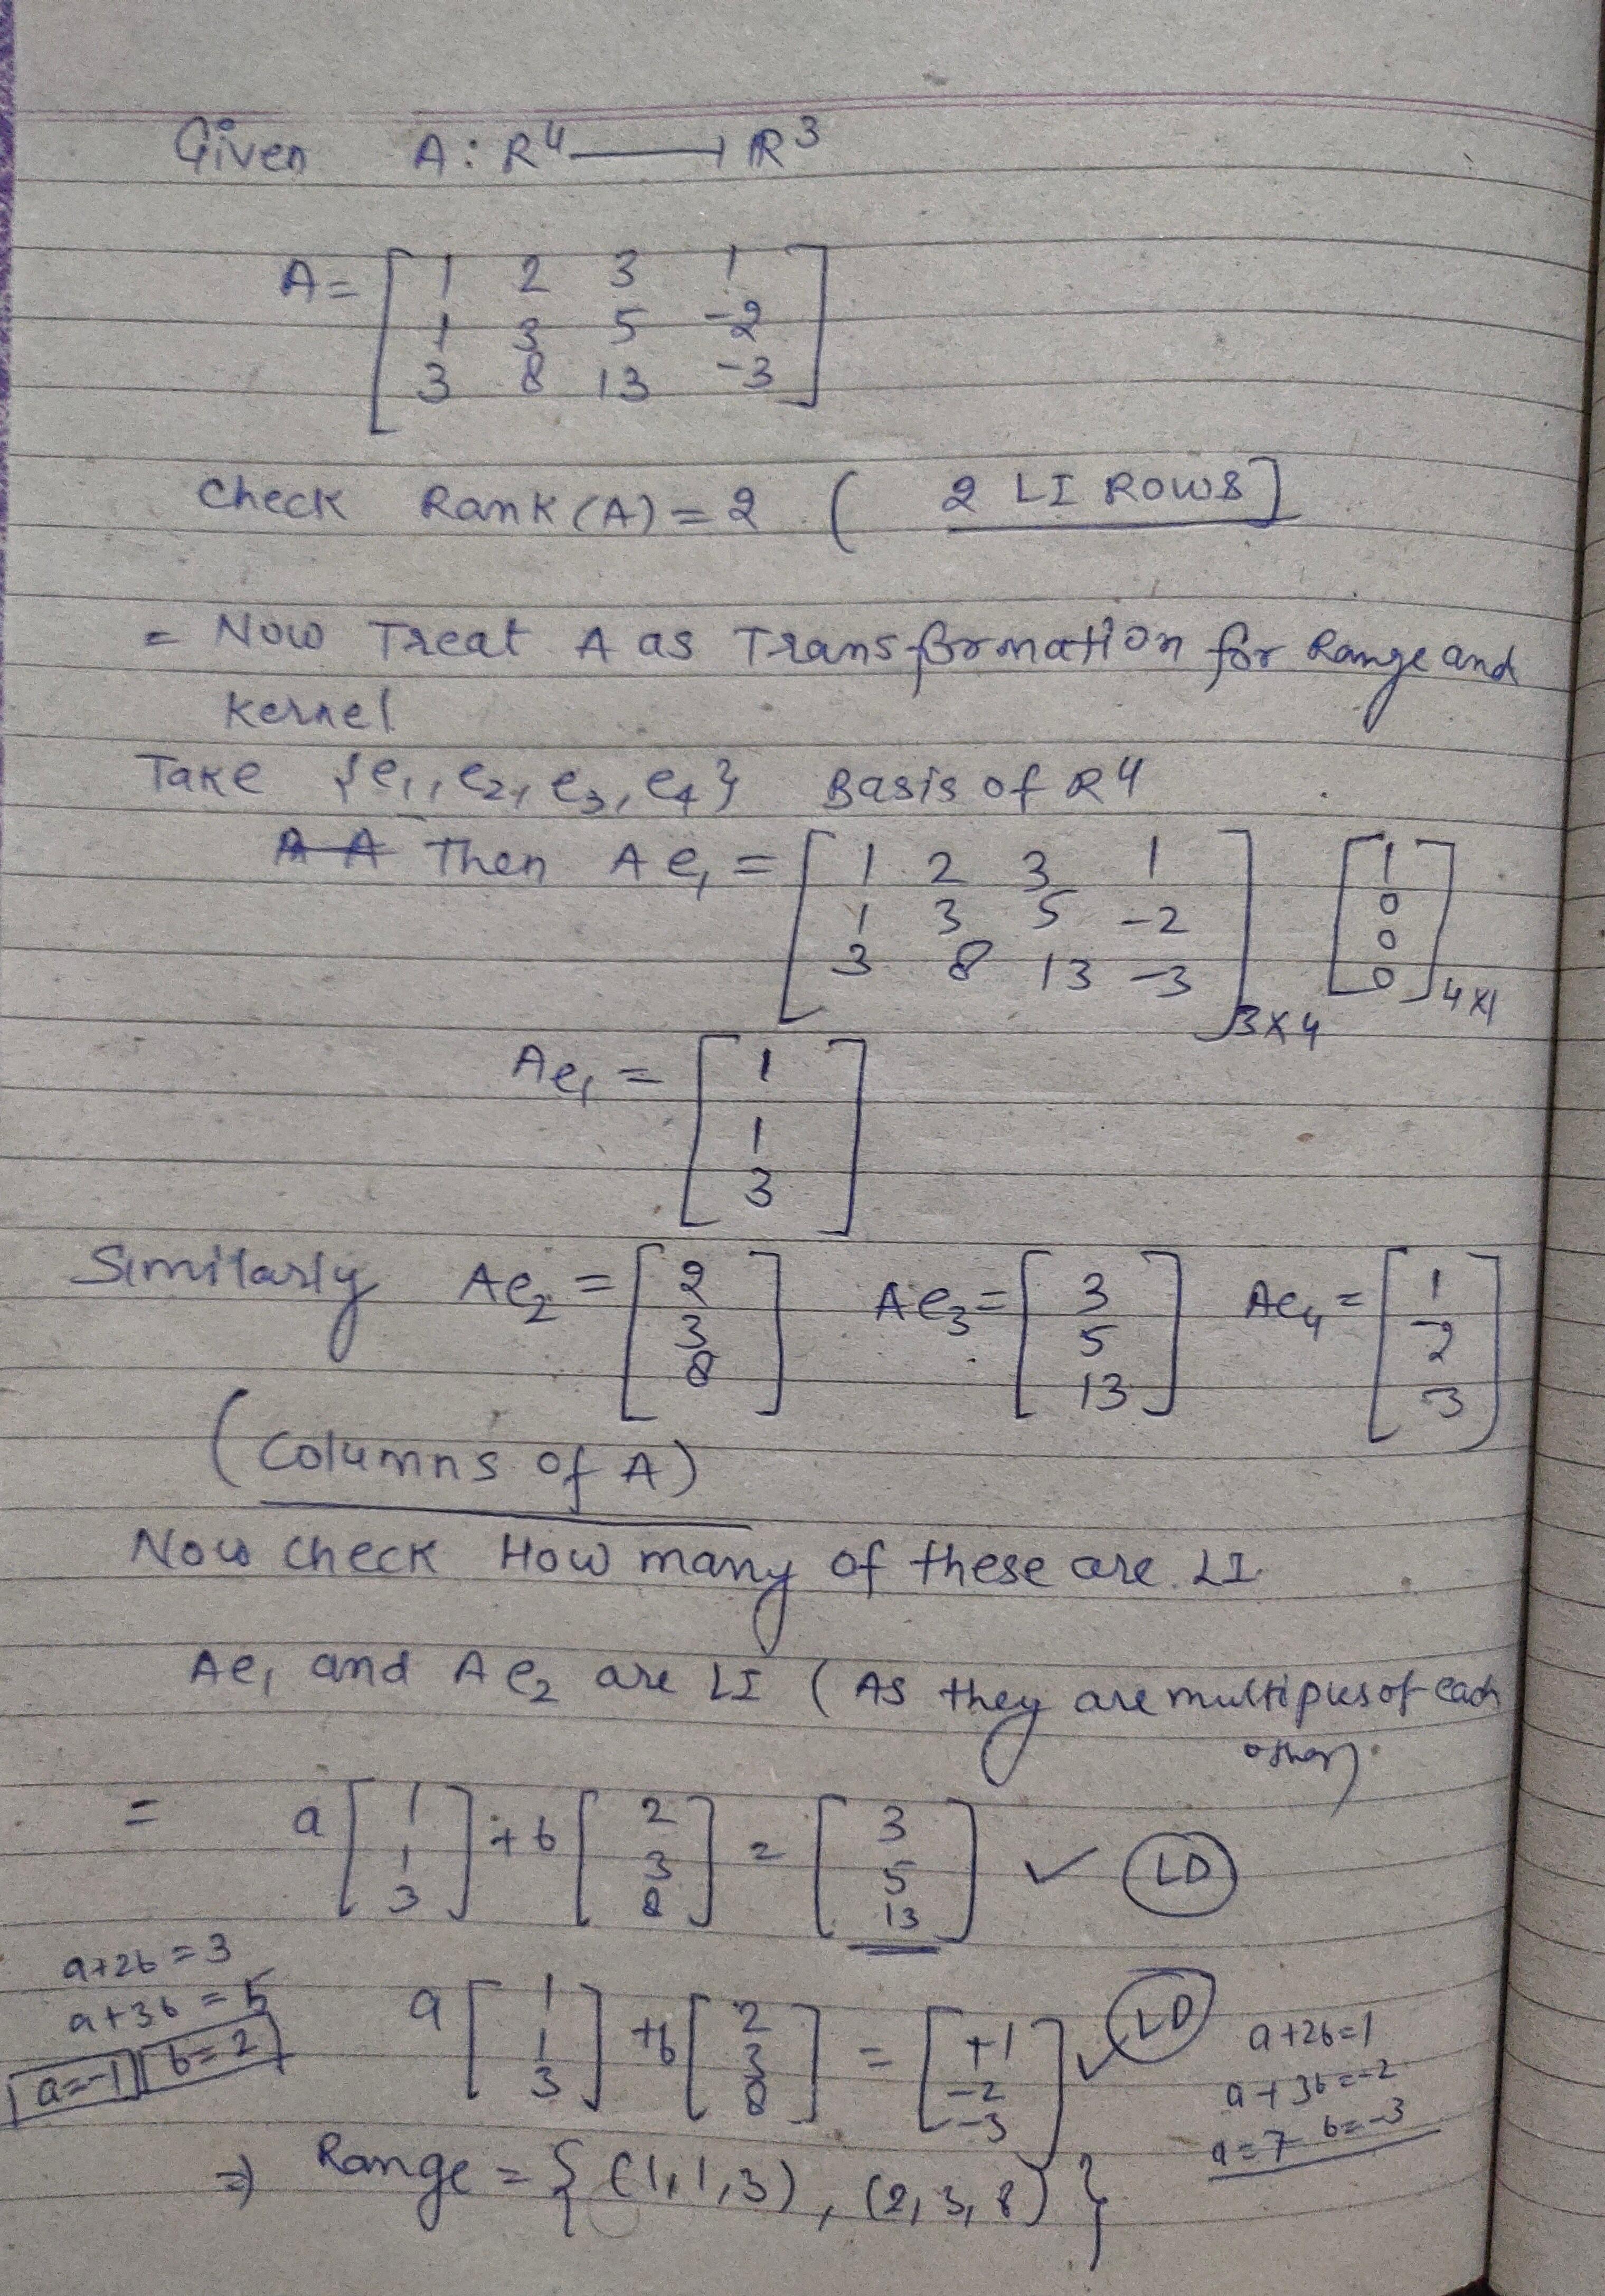 Given A : R4 ⟶ R3
A = [ 1 2 3 1
1 3 5 -2
3 8 13 -3 ]
Check Rank(A) = 2 ( 2 LI ROWS ]
= Now Treat A as Transformation for Range and
Kernel
Take {e1, e2, e3, e4} Basis of R4
Then Ae1 = [ 1 2 3 1 ] [ 1
1 3 5 -2 0
3 8 13 -3 0
]3x4 0 ]4x1
Ae1 = [ 1
1
3 ]
Similarly Ae2 = [ 2 Ae3 = [ 3 Ae4 = [ 1
3 5 -2
8 ] 13 ] -3 ]
(Columns of A)
Now check How many of these are LI
Ae1 and Ae2 are LI ( As they are multiples of each
other)
= a [ 1 ] + b [ 2 ] = [ 3 ] ✓ LD
1 3 5
3 8 13
a+2b=3
a+3b=5
a=-1 b=2
a [ 1 ] + b [ 2 ] = [ +1 ] ✓ LD
1 3 -2
3 8 -3
a+2b=1
a+3b=-2
a=7 b=-3
⇒ Range = { (1,1,3), (2,3,8) }